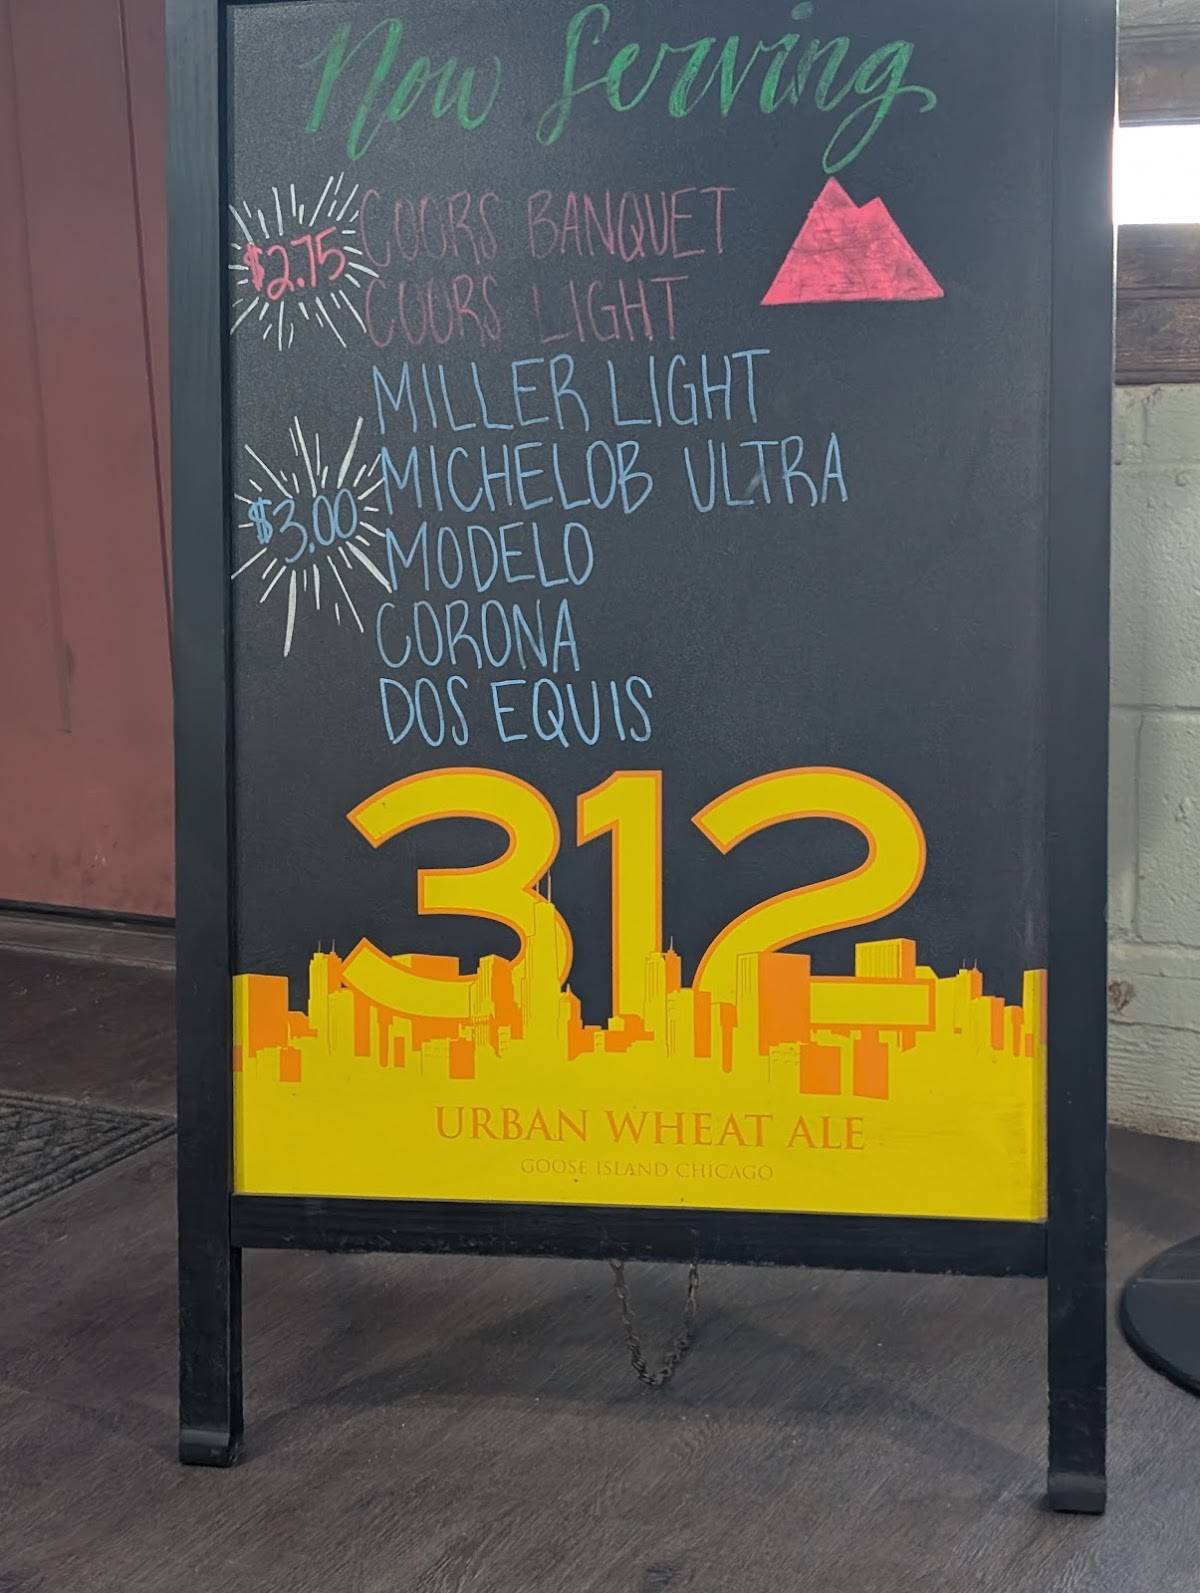 Now Serving
$2.75
COORS BANQUET
COORS LIGHT
$3.00
MILLER LIGHT
MICHELOB ULTRA
MODELO
CORONA
DOS EQUIS
312
URBAN WHEAT ALE
GOOSE ISLAND CHICAGO